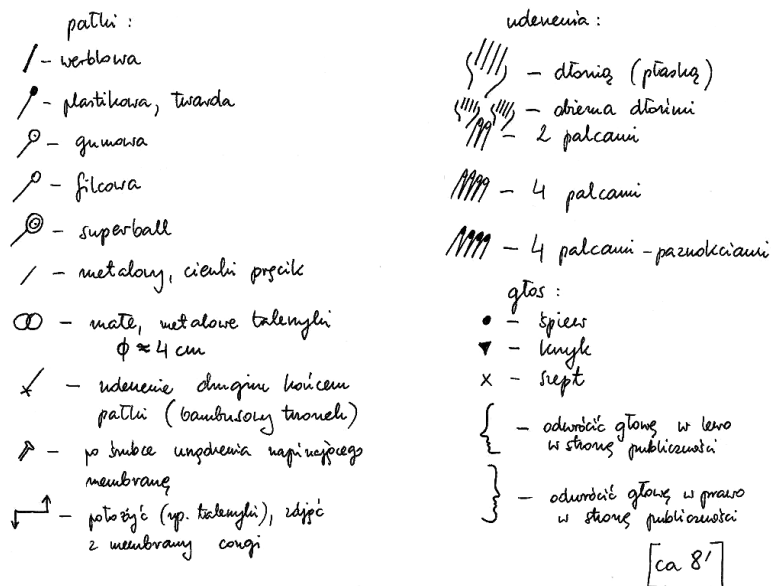 pałki :
– werblowa
– plastikowa, twarda
– gumowa
– filcowa
– superball
– metalowy, cienki pręcik
– małe, metalowe talerzyki
ϕ ≈ 4 cm
– uderzenie drugim końcem
pałki (bambusowy trzonek)
– po śrubce urządzenia napinającego
membranę
– położyć (np. talerzyki), zdjąć
z membrany congi
uderzenia :
– dłonią (płaską)
– obiema dłońmi
– 2 palcami
– 4 palcami
– 4 palcami – paznokciami
głos :
– śpiew
– krzyk
x – szept
– odwrócić głowę w lewo
w stronę publiczności
– odwrócić głowę w prawo
w stronę publiczności
[ca 8']